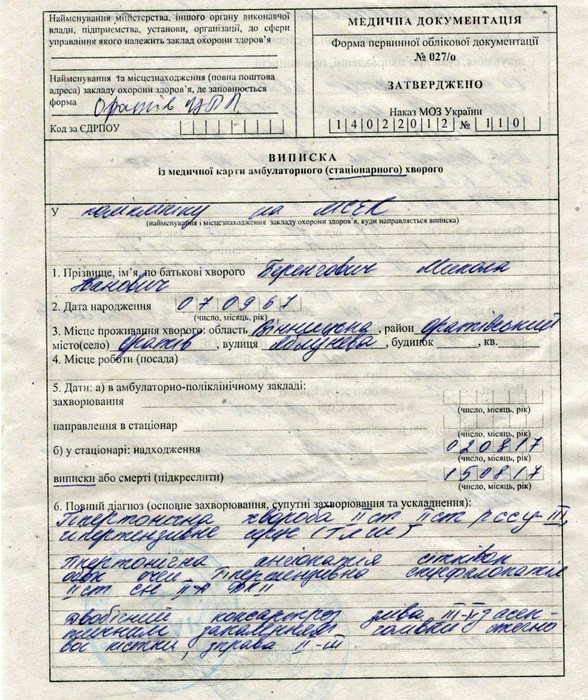 Найменування міністерства, іншого органу виконавчої
влади, підприємства, установи, організації, до сфери
управління якого належить заклад охорони здоров'я
Найменування та місцезнаходження (повна поштова
адреса) закладу охорони здоров'я, де заповнюється
форма Оратів ЦРЛ
Код за ЄДРПОУ
МЕДИЧНА ДОКУМЕНТАЦІЯ
Форма первинної облікової документації
№ 027/о
ЗАТВЕРДЖЕНО
Наказ МОЗ України
14022012 № 110
ВИПИСКА
із медичної карти амбулаторного (стаціонарного) хворого
У поліклініку на МСЕК
(найменування і місцезнаходження закладу охорони здоров'я, куди направляється виписка)
1. Прізвище, ім'я, по батькові хворого Беренгович Микола
Іванович
2. Дата народження 070967
(число, місяць, рік)
3. Місце проживання хворого: область Вінницька, район Оратівський
місто(село) Оратів, вулиця, будинок, кв.
4. Місце роботи (посада)
5. Дати: а) в амбулаторно-поліклінічному закладі:
захворювання
(число, місяць, рік)
направлення в стаціонар
(число, місяць, рік)
б) у стаціонарі: надходження 020817
(число, місяць, рік)
виписки або смерті (підкреслити) 150817
(число, місяць, рік)
6. Повний діагноз (основне захворювання, супутні захворювання та ускладнення):
Гіпертонічна хвороба II ст II ст III,
гіпертензивне серце
Гіпертонічна ангіопатія сітківок
обох очей Гіпертензивна енцефалопатія
II ст СН II А
Двобічний коксартроз зліва III-IV з асеп-
тичним головки стегно
вої кістки, справа II-III